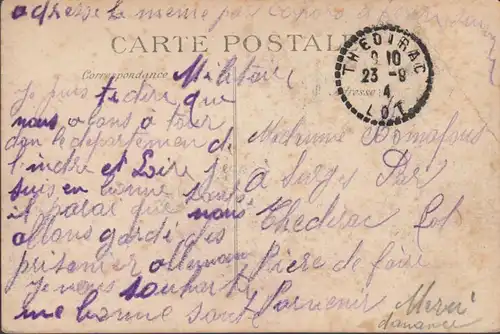 adresse la meme pas
CARTE POSTALE
Correspondance Militaire
Adresse
THEDIRAC
10
23-9
4
LOT
Je puis te dire que
nous alons a tour
dan le departemen de
l'indre et Loire je
suis en bonne santé
il parai que nous
allons garde des
prisonier allemans
Je vous souhaite
une bonne santé
Madame
à Serges Par
Thedirac Lot
Pière de faire
Parvenir Merci
d'avance